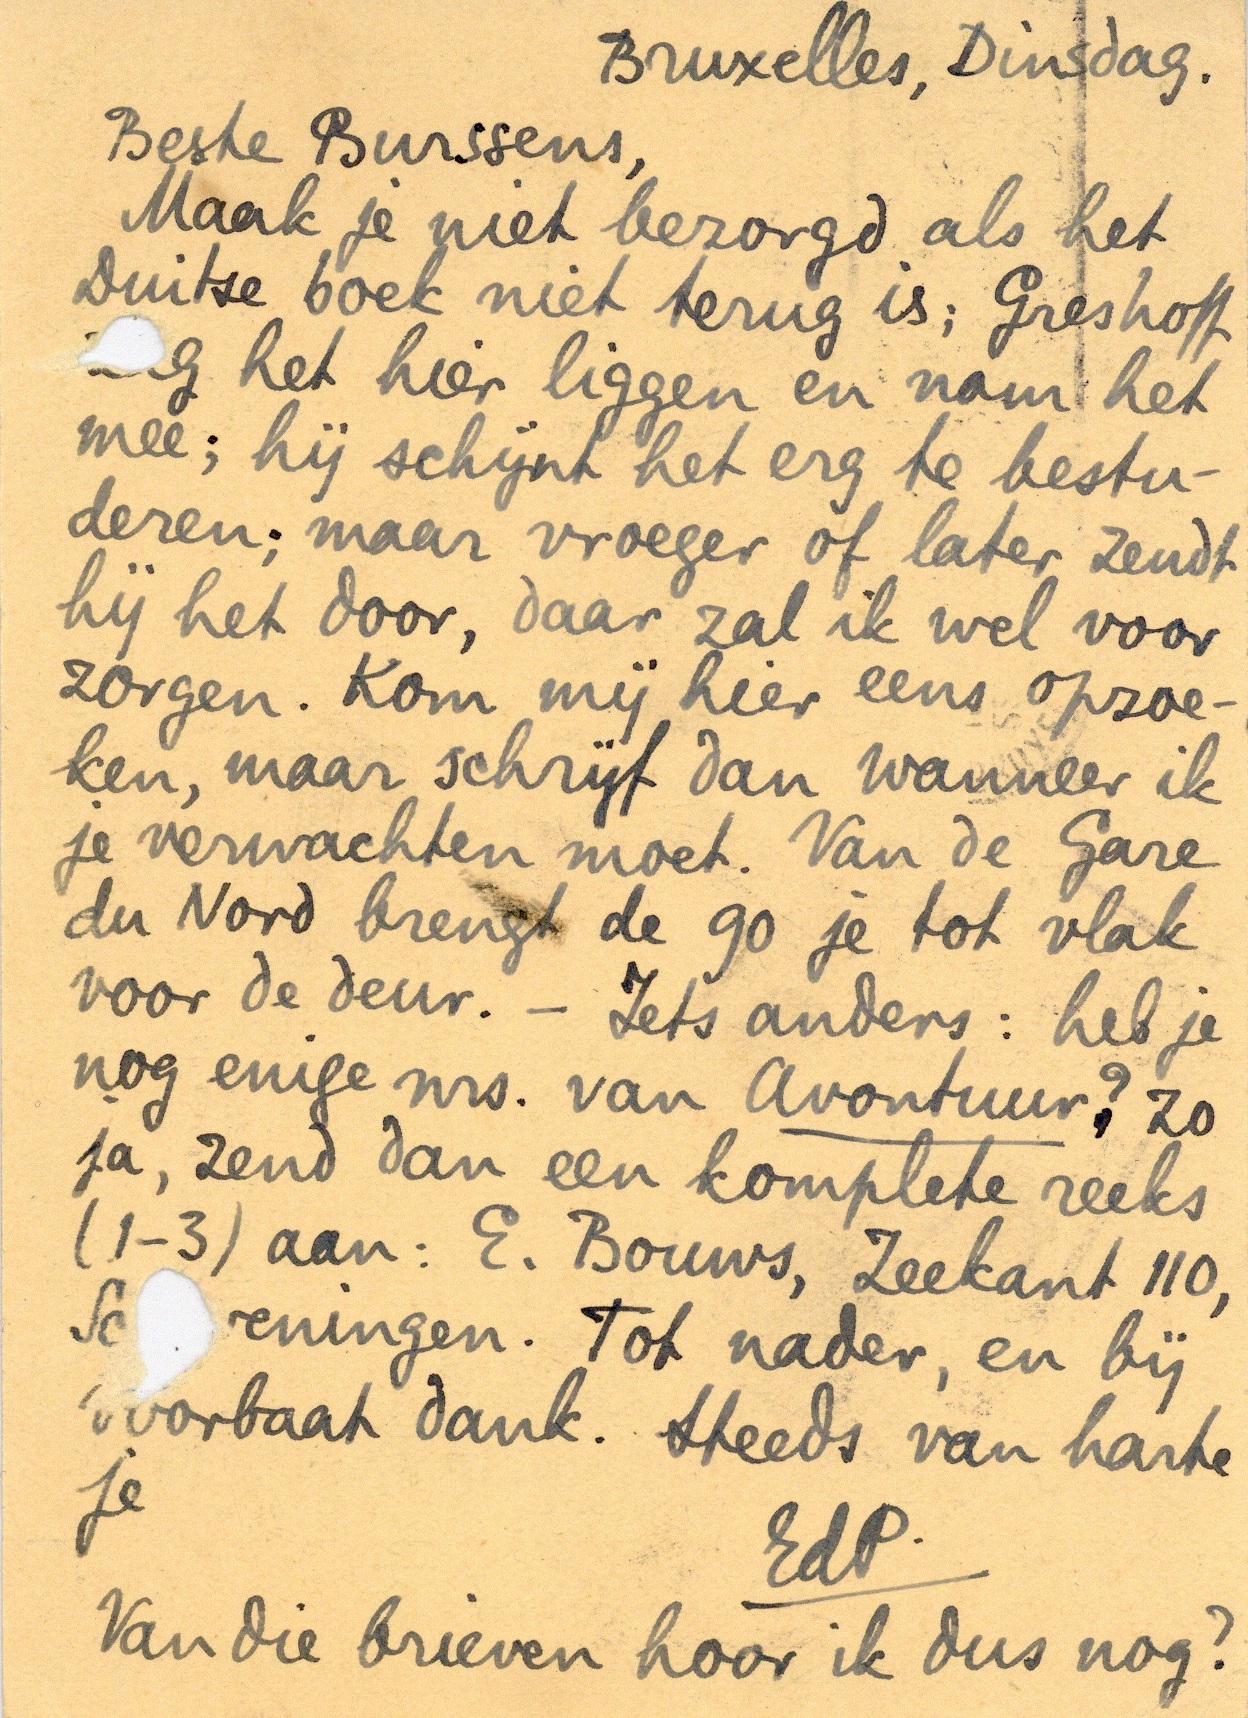 Bruxelles, Dinsdag.
Beste Burssens,
Maak je niet bezorgd als het
Duitse boek niet terug is; Greshoff
het hier liggen en nam het
mee; hij schijnt het erg te bestu-
deren; maar vroeger of later zendt
hij het door, daar zal ik wel voor
zorgen. Kom mij hier eens opzoe-
ken, maar schrijf dan wanneer ik
je verwachten moet. Van de Gare
du Nord brengt de 90 je tot vlak
voor de deur. – Iets anders: heb je
nog enige nrs. van Avontuur? Zo
ja, zend dan een komplete reeks
(1-3) aan: E. Bouws, Zeekant 110,
Sc reningen. Tot nader, en bij
voorbaat dank. Steeds van harte
je
EdP.
Van die brieven hoor ik dus nog?